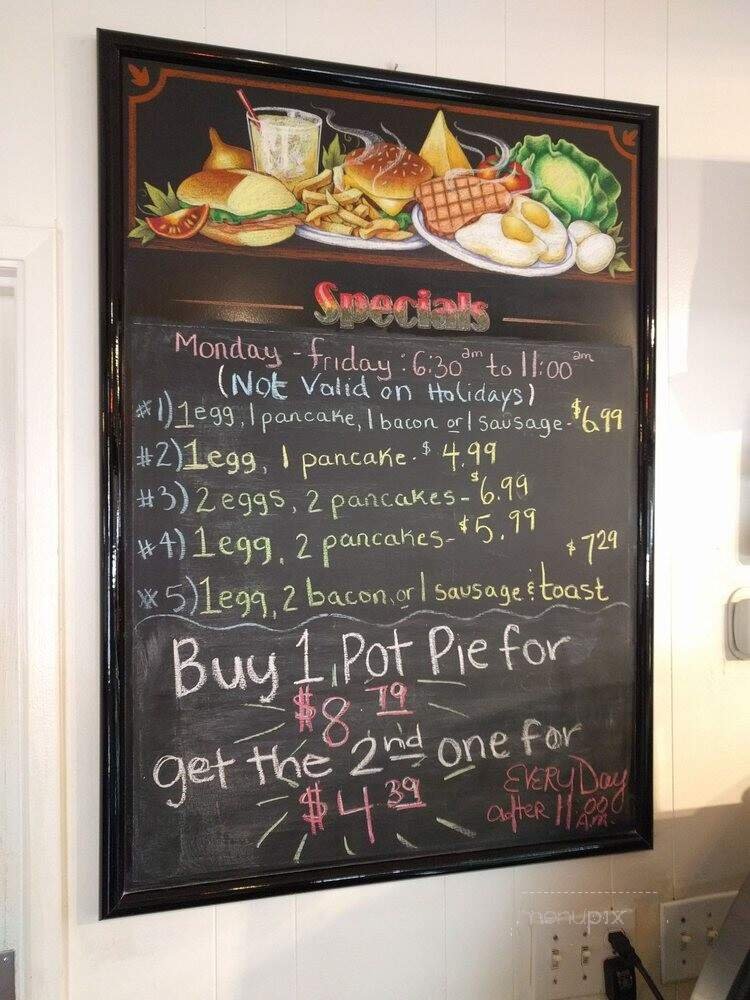 Specials
Monday - friday : 6:30 am to 11:00 am
(Not Valid on Holidays)
#1) 1egg, 1 pancake, 1 bacon or 1 sausage - $6.99
#2) 1egg, 1 pancake. $4.99
#3) 2 eggs, 2 pancakes - $6.99
#4) 1egg, 2 pancakes - $5.99
#5) 1egg, 2 bacon, or 1 sausage & toast $7.29
Buy 1 Pot Pie for
$8.79
get the 2nd one for
$4.39
EVERYDay
after 11:00 A.m
menupix